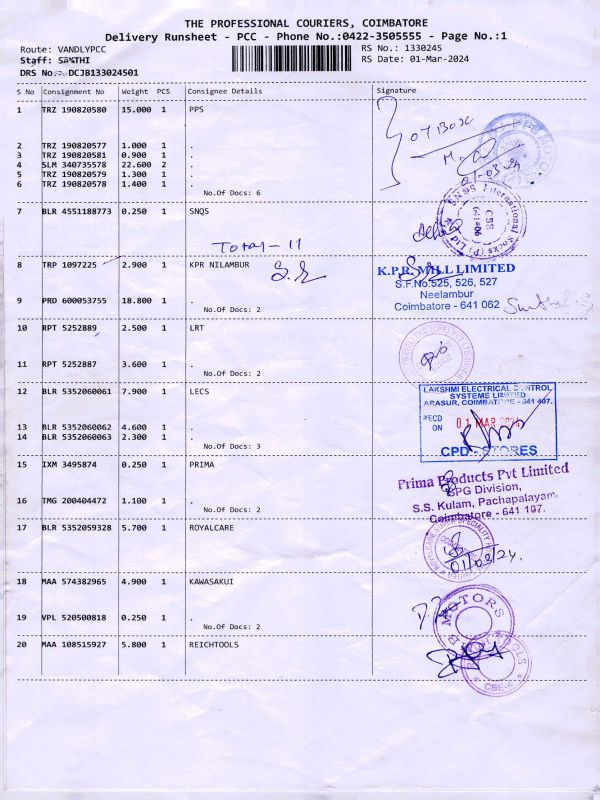 THE PROFESSIONAL COURIERS, COIMBATORE
Delivery Runsheet - PCC - Phone No.:0422-3505555 - Page No.:1
Route: VANDLYPCC RS No.: 1330245
Staff: SAKTHI RS Date: 01-Mar-2024
DRS No.: DCJB133024501
S No Consignment No Weight PCS Consignee Details Signature
1 TRZ 190820580 15.000 1 PPS
07 Box
2 TRZ 190820577 1.000 1 .
3 TRZ 190820581 0.900 1 .
4 SLM 340735578 22.600 2 .
5 TRZ 190820579 1.300 1 .
6 TRZ 190820578 1.400 1 .
No.Of Docs: 6
7 BLR 4551188773 0.250 1 SNQS
SNQS International Socks (P) Ltd
CBE
641406
Total - 11
8 TRP 1097225 2.900 1 KPR NILAMBUR
K.P.R. MILL LIMITED
S.F.No.525, 526, 527
Neelambur
Coimbatore - 641 062
9 PRD 600053755 18.800 1 .
No.Of Docs: 2
10 RPT 5252889 2.500 1 LRT
11 RPT 5252887 3.600 1 .
No.Of Docs: 2
12 BLR 5352060061 7.900 1 LECS
LAKSHMI ELECTRICAL CONTROL
SYSTEMS LIMITED
ARASUR, COIMBATORE - 641 407.
RECD
ON
01 MAR 2024
CPD - STORES
13 BLR 5352060062 4.600 1 .
14 BLR 5352060063 2.300 1 .
No.Of Docs: 3
15 IXM 3495874 0.250 1 PRIMA
Prima Products Pvt Limited
SPG Division,
S.S. Kulam, Pachapalayam,
Coimbatore - 641 107.
16 TMG 200404472 1.100 1 .
No.Of Docs: 2
17 BLR 5352059328 5.700 1 ROYALCARE
01/03/24.
18 MAA 574382965 4.900 1 KAWASAKUI
MOTORS
19 VPL 520500818 0.250 1 .
No.Of Docs: 2
20 MAA 108515927 5.800 1 REICHTOOLS
CBE-4